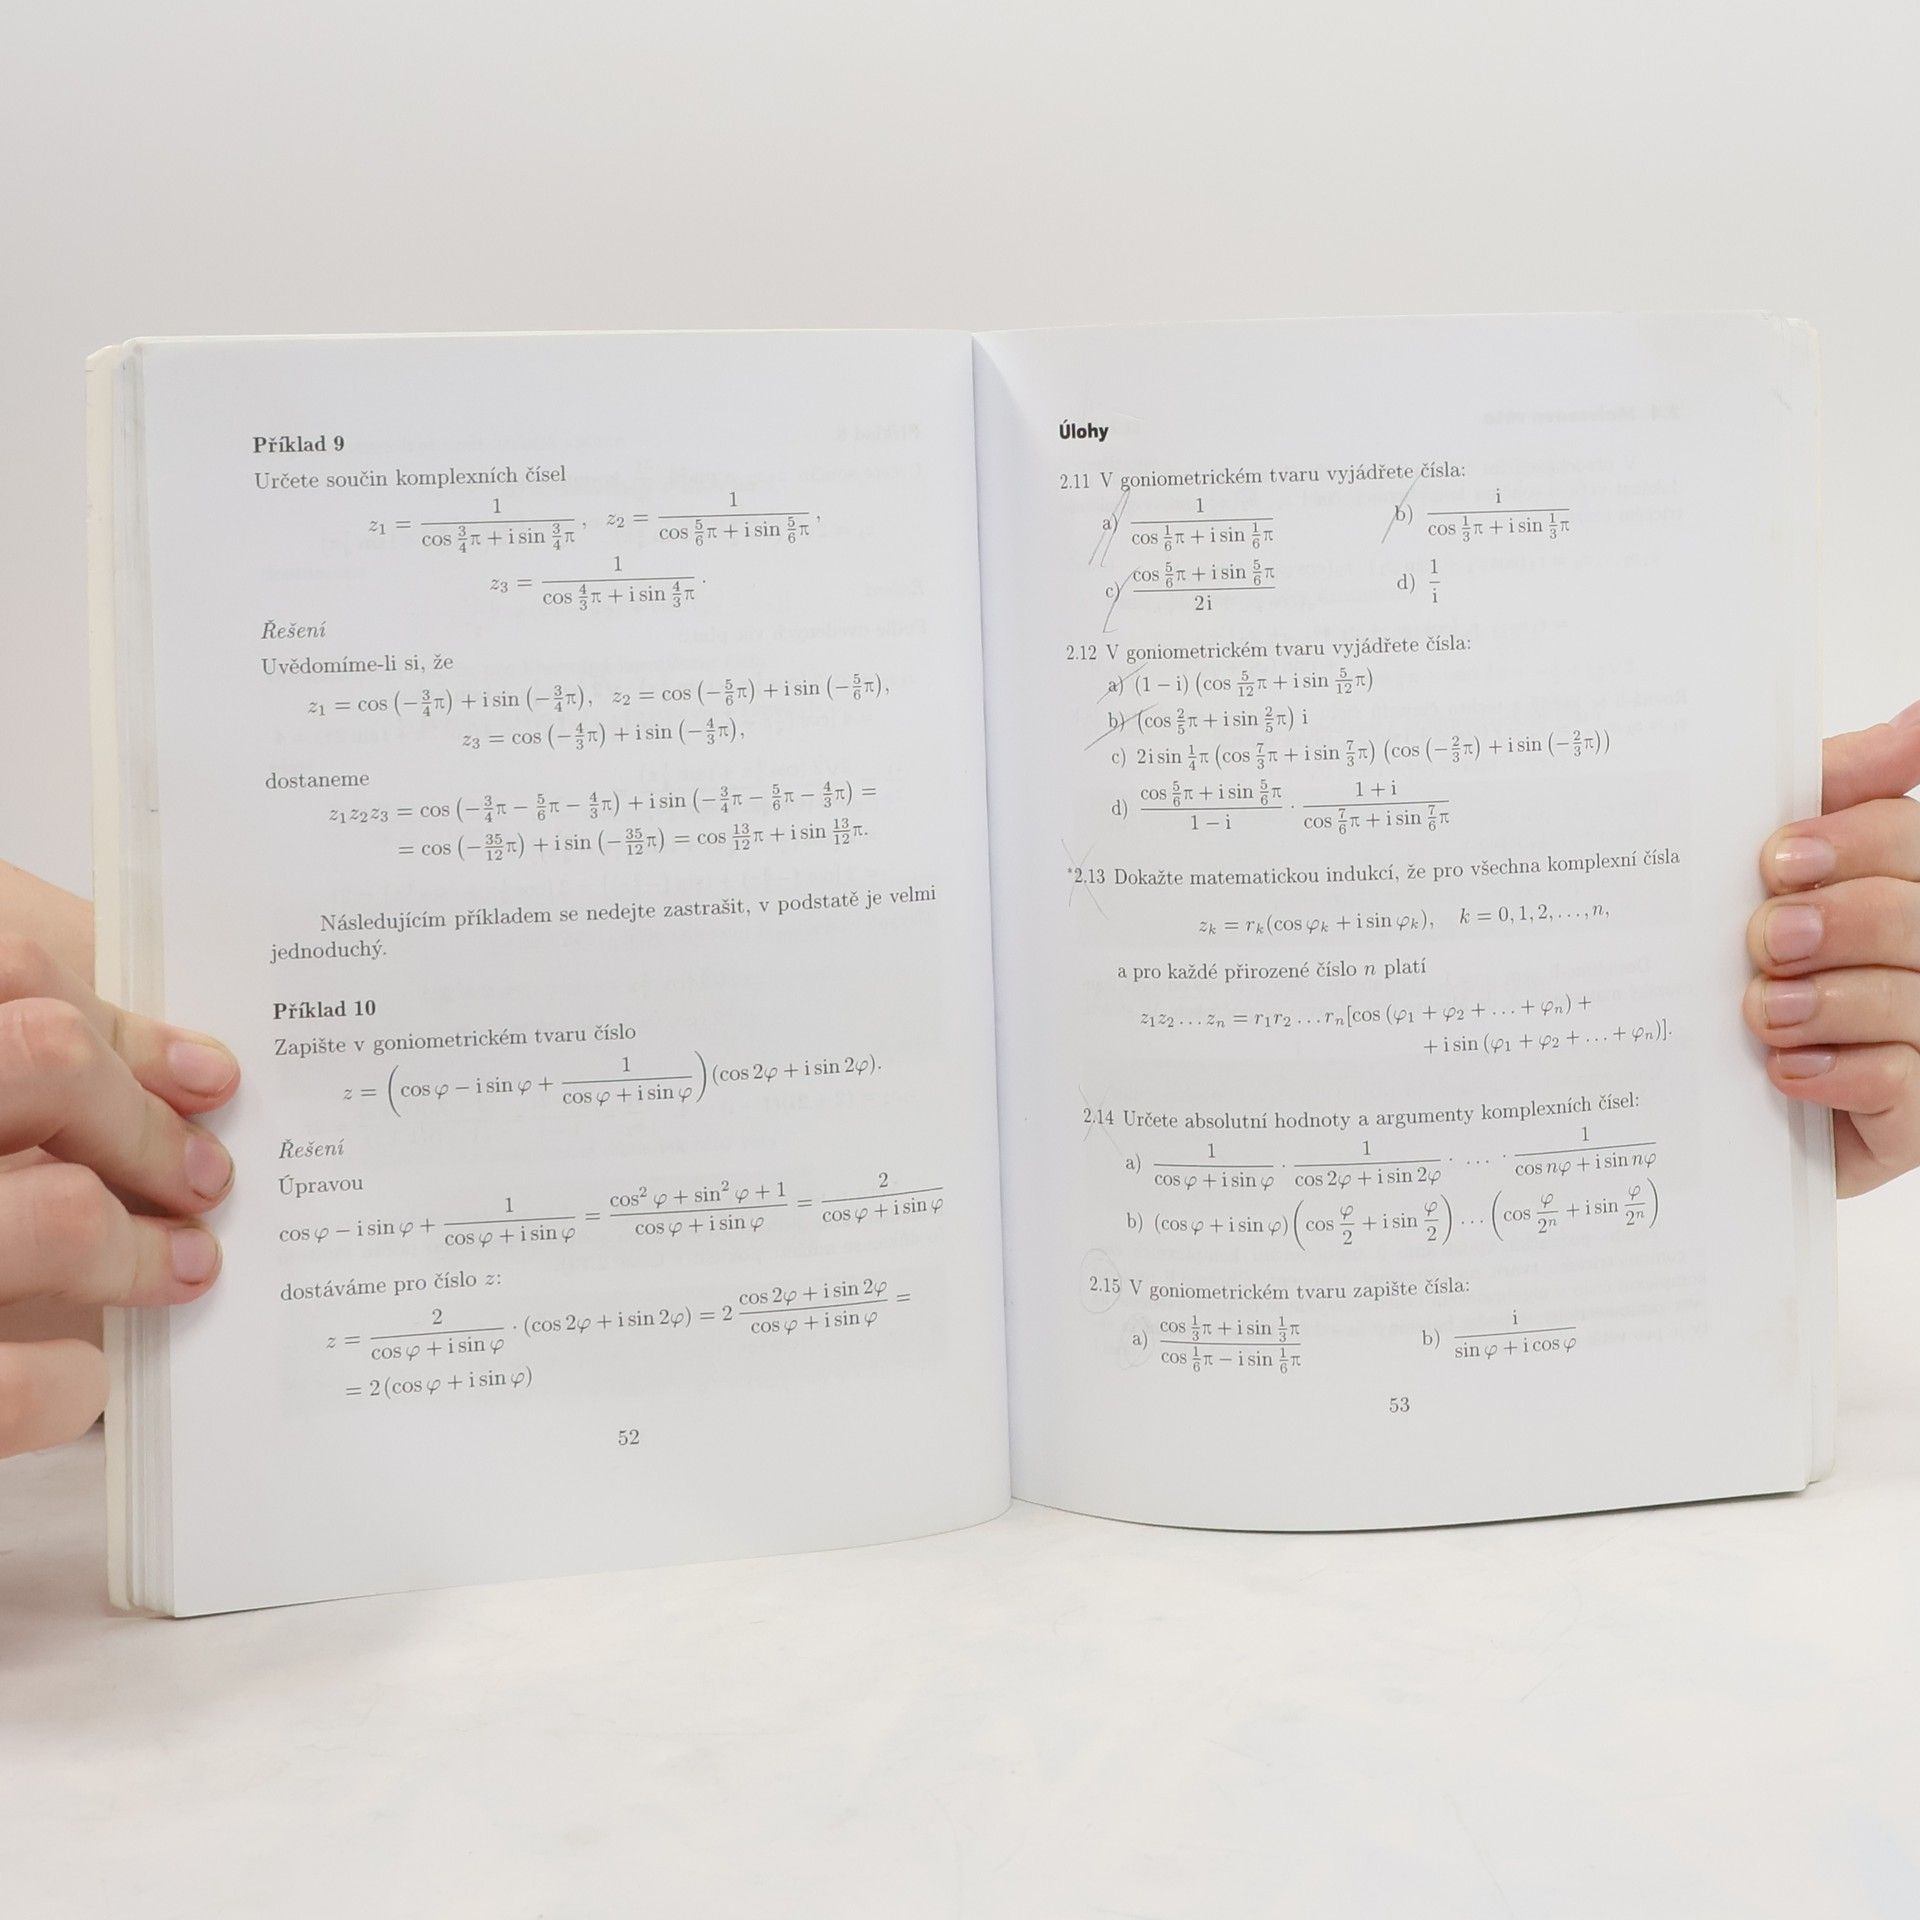 Příklad 9
Určete součin komplexních čísel
z₁ = 1/(cos 3/4 π + i sin 3/4 π), z₂ = 1/(cos 5/6 π + i sin 5/6 π),
z₃ = 1/(cos 4/3 π + i sin 4/3 π).
Řešení
Uvědomíme-li si, že
z₁ = cos (−3/4 π) + i sin (−3/4 π), z₂ = cos (−5/6 π) + i sin (−5/6 π),
z₃ = cos (−4/3 π) + i sin (−4/3 π),
dostaneme
z₁z₂z₃ = cos (−3/4 π − 5/6 π − 4/3 π) + i sin (−3/4 π − 5/6 π − 4/3 π) =
= cos (−35/12 π) + i sin (−35/12 π) = cos 13/12 π + i sin 13/12 π.
Následujícím příkladem se nedejte zastrašit, v podstatě je velmi
jednoduchý.
Příklad 10
Zapište v goniometrickém tvaru číslo
z = (cos φ − i sin φ + 1/(cos φ + i sin φ)) (cos 2φ + i sin 2φ).
Řešení
Úpravou
cos φ − i sin φ + 1/(cos φ + i sin φ) = (cos² φ + sin² φ + 1)/(cos φ + i sin φ) = 2/(cos φ + i sin φ)
dostáváme pro číslo z:
z = 2/(cos φ + i sin φ) · (cos 2φ + i sin 2φ) = 2 (cos 2φ + i sin 2φ)/(cos φ + i sin φ) =
= 2 (cos φ + i sin φ)
52
Úlohy
2.11 V goniometrickém tvaru vyjádřete čísla:
a) 1/(cos 1/6 π + i sin 1/6 π) b) i/(cos 1/3 π + i sin 1/3 π)
c) (cos 5/6 π + i sin 5/6 π)/2i d) 1/i
2.12 V goniometrickém tvaru vyjádřete čísla:
a) (1 − i) (cos 5/12 π + i sin 5/12 π)
b) (cos 2/5 π + i sin 2/5 π) i
c) 2i sin 1/4 π (cos 7/3 π + i sin 7/3 π) (cos (−2/3 π) + i sin (−2/3 π))
d) (cos 5/6 π + i sin 5/6 π)/(1 − i) · (1 + i)/(cos 7/6 π + i sin 7/6 π)
*2.13 Dokažte matematickou indukcí, že pro všechna komplexní čísla
zₖ = rₖ(cos φₖ + i sin φₖ), k = 0, 1, 2, …, n,
a pro každé přirozené číslo n platí
z₁z₂ … zₙ = r₁r₂ … rₙ[cos (φ₁ + φ₂ + … + φₙ) +
+ i sin (φ₁ + φ₂ + … + φₙ)].
2.14 Určete absolutní hodnoty a argumenty komplexních čísel:
a) 1/(cos φ + i sin φ) · 1/(cos 2φ + i sin 2φ) · … · 1/(cos nφ + i sin nφ)
b) (cos φ + i sin φ) (cos φ/2 + i sin φ/2) … (cos φ/2ⁿ + i sin φ/2ⁿ)
2.15 V goniometrickém tvaru zapište čísla:
a) (cos 1/3 π + i sin 1/3 π)/(cos 1/6 π − i sin 1/6 π) b) i/(sin φ + i cos φ)
53